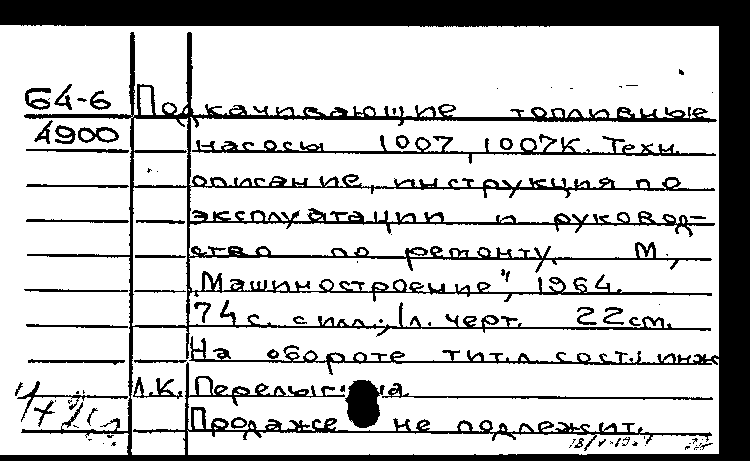 Б4-6 Подкачивающие топливные
4900 насосы 1007, 1007К. Техн.
описание, инструкция по
эксплуатации и руковод=
ство по ремонту. М.,
„Машиностроение", 1964.
74 с. с илл.; 1 л. черт. 22 см.
На обороте тит.л. сост.: инж
Л.К.
Продаже не подлежит.